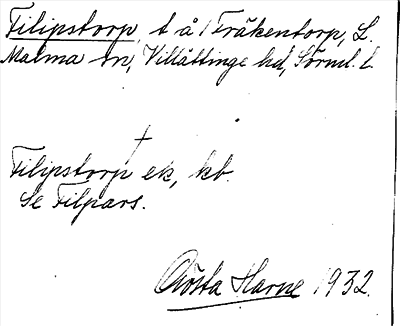 Filipstorp, t å / Fräkentorp, L.
Malma sn, Villåttinge hd, Sörml. l.
Filipstorp ek, kb.
Se Filpars.
Gösta Harne 1932